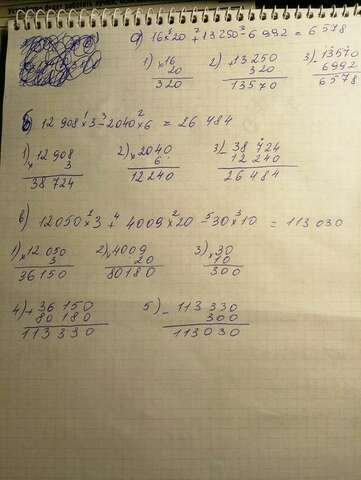 а) 16×20 + 13250 - 6992 = 6578
1) ×16
20
320
2) +13250
320
13570
3) -13570
6992
6578
б) 12 908 × 3 - 2040 × 6 = 26 484
1) ×12 908
3
38 724
2) ×2040
6
12 240
3) -38 724
12 240
26 484
в) 12050 × 3 + 4009 × 20 - 30 × 10 = 113 030
1) ×12 050
3
36150
2) ×4009
20
80180
3) ×30
10
300
4) +36 150
80 180
113 330
5) -113 330
300
113 030